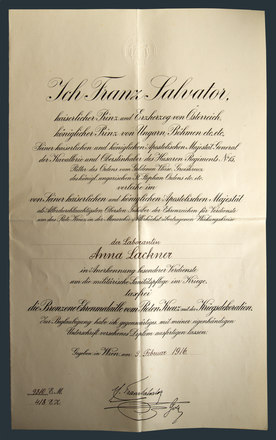 Ich Franz Salvator,
kaiserlicher Prinz und Erzherzog von Österreich,
königlicher Prinz von Ungarn, Böhmen etc. etc.
Seiner kaiserlichen und königlichen Apostolischen Majestät General
der Kavallerie und Oberstinhaber des Husaren Regiments Nº 15,
Ritter des Ordens vom Goldenen Vliese, Grosskreuz
des königl. ungarischen St. Stephan Ordens etc. etc.
verleihe im
von Seiner kaiserlichen und königlichen Apostolischen Majestät
als Allerhöchst Oberster Inhaber der Ehrenzeichen für Verdienste
um das Rote Kreuz in der Monarchie Wirkungskreise
der Laborantin
Anna Lackner
in Anerkennung besonderer Verdienste
um die militärische Sanitätspflege im Kriege,
taxfrei
die Bronzene Ehrenmedaille vom Roten Kreuz mit der Kriegsdekoration.
Zur Beglaubigung habe ich gegenwärtiges mit meiner eigenhändigen
Unterschrift versehenes Diplom ausfertigen lassen.
Gegeben in Wien am 3. Februar 1916
E.M.
E.Z.